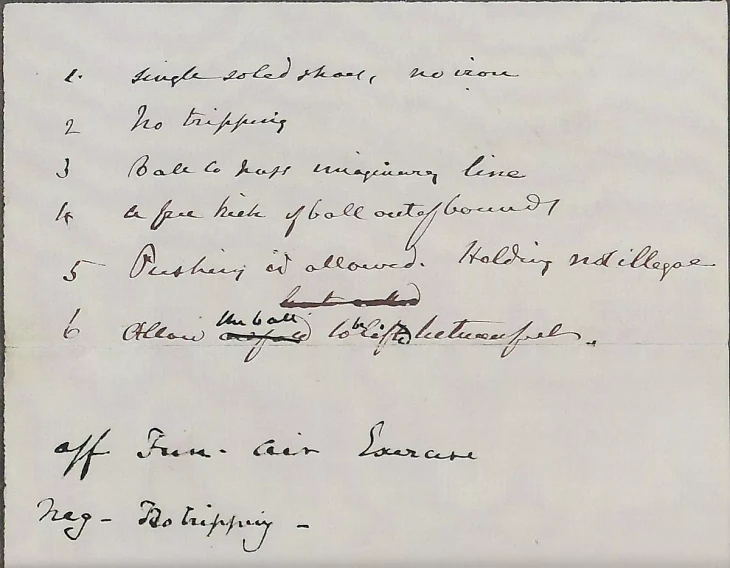 1. single soled shoes, no iron
2 No tripping
3 Ball to pass imaginary line
4 a free kick if ball out of bounds
5 Pushing is allowed. Holding not illegal
the ball
6 Allow to be lift between feet.
aff Fun - air Exercise
Neg - No tripping -